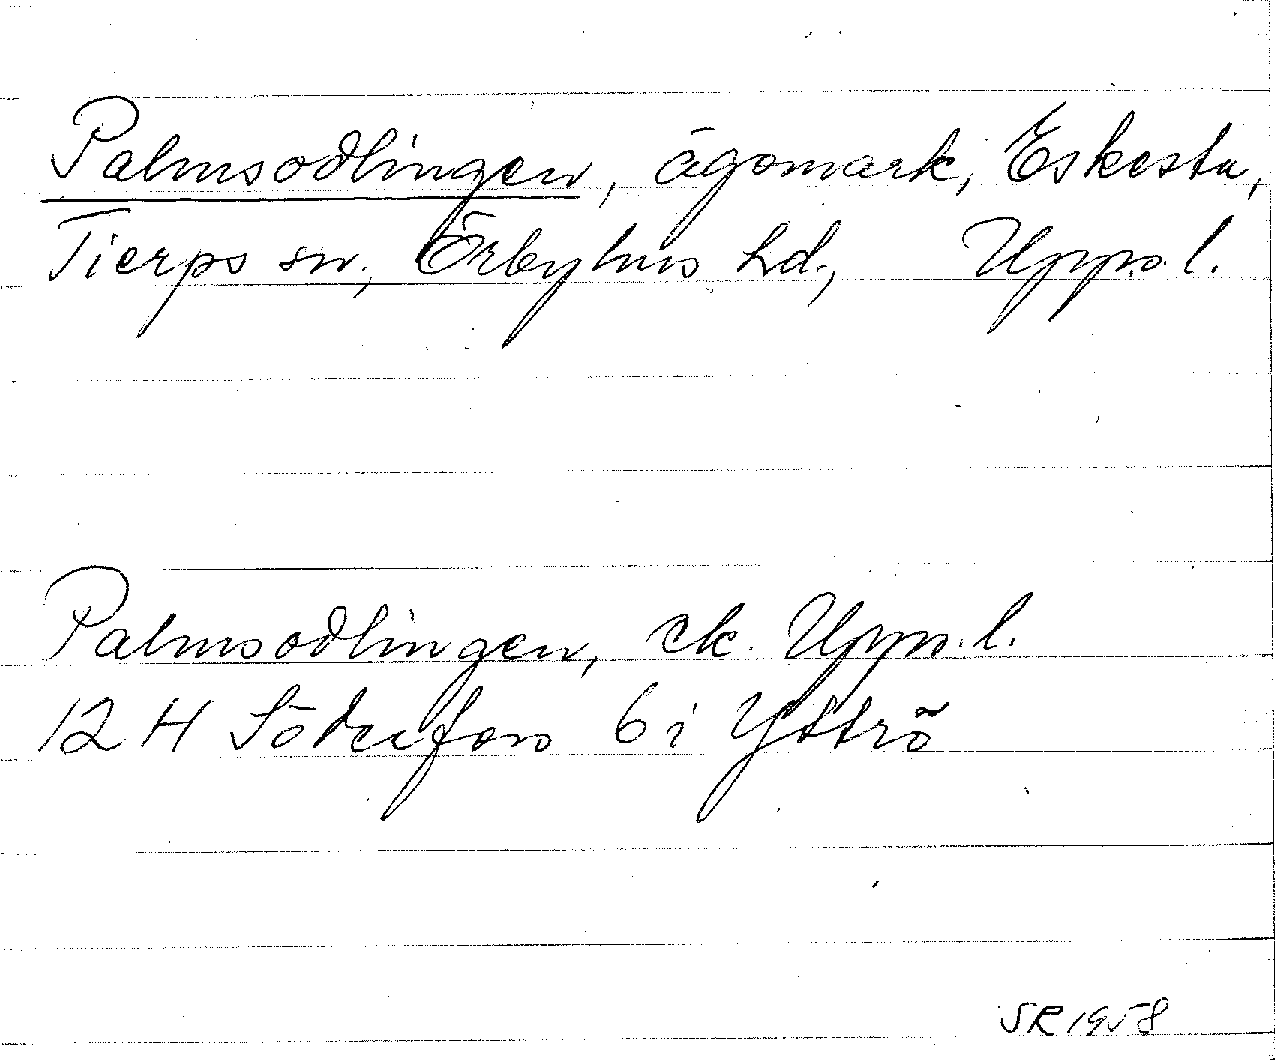 Palmsodlingen, ägomark, Eskesta,
Tierps sn., Örbyhus hd., Uppl.
Palmsodlingen, ek. Uppl.
12 H Söderfors 6 i Yttrö
SR 1958